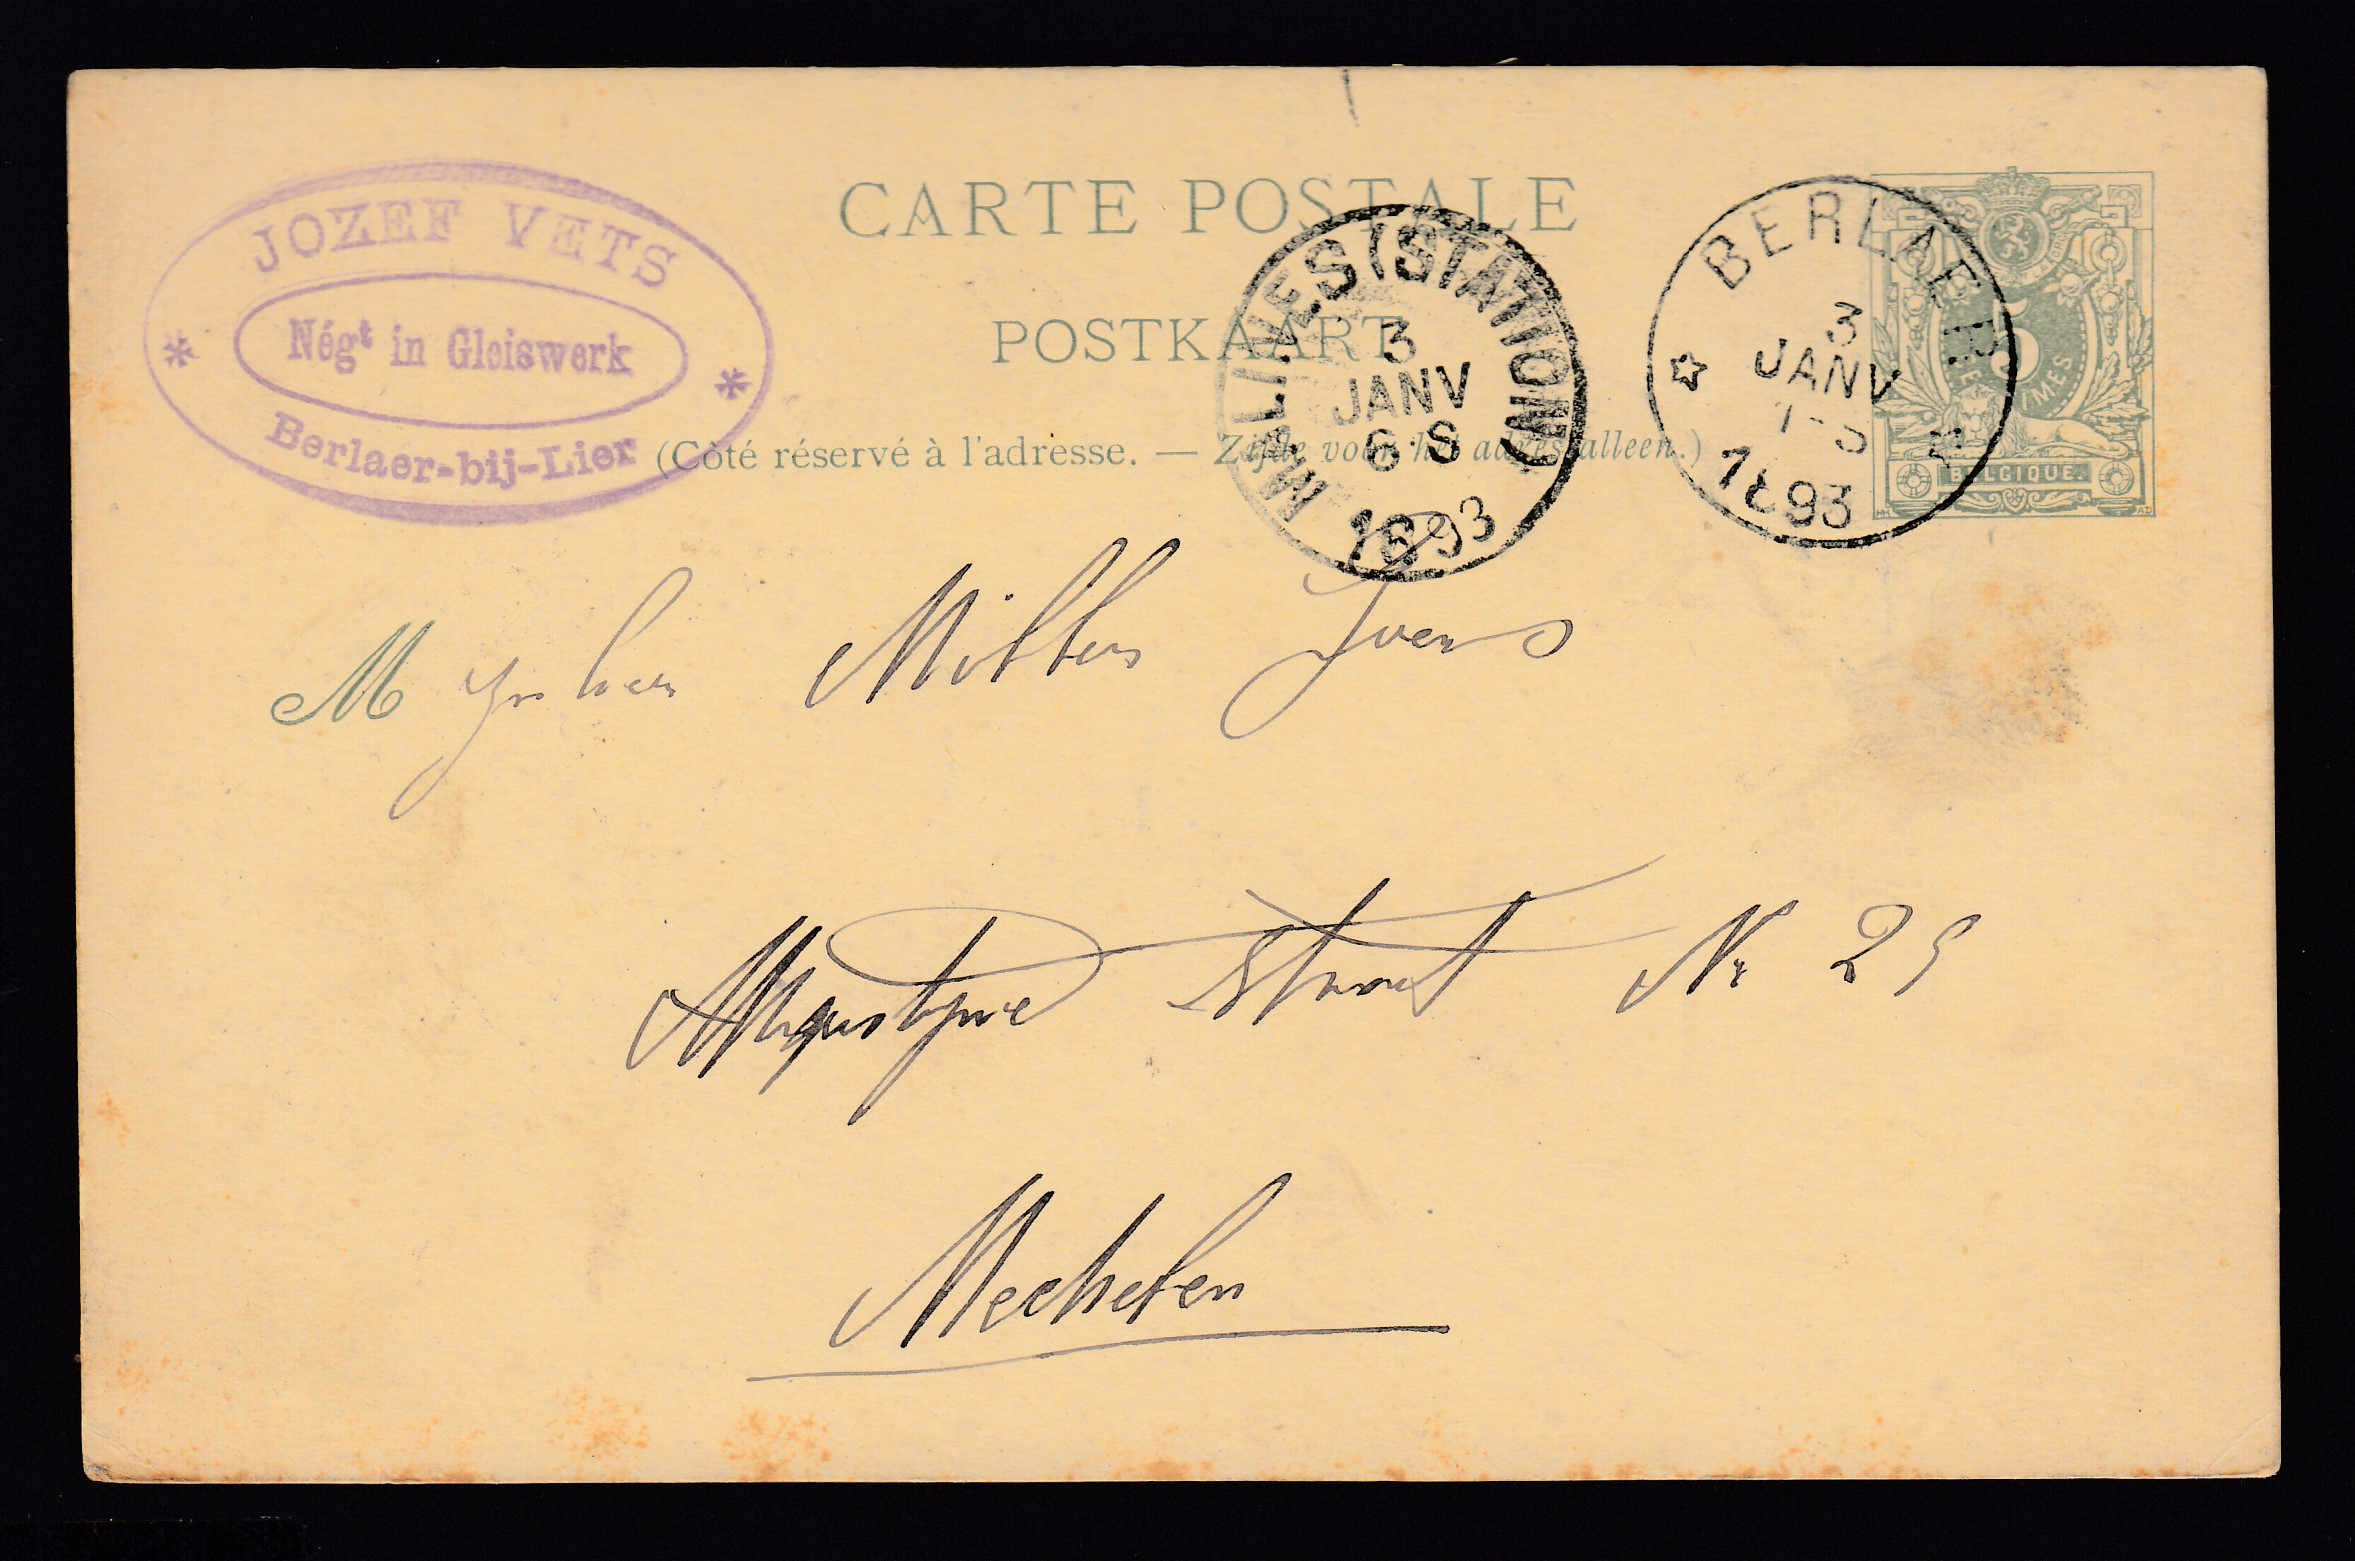 CARTE POSTALE
POSTKAART
(Côté réservé à l'adresse. — Zijde voor het adres alleen.)
JOZEF VETS
Négt in Gleiswerk
Berlaer-bij-Lier
MALINES (STATION)
3
JANV
6-S
1893
BERLAER
3
JANV
1893
5
BELGIQUE.
Mynheer
Straat Nr
Mechelen